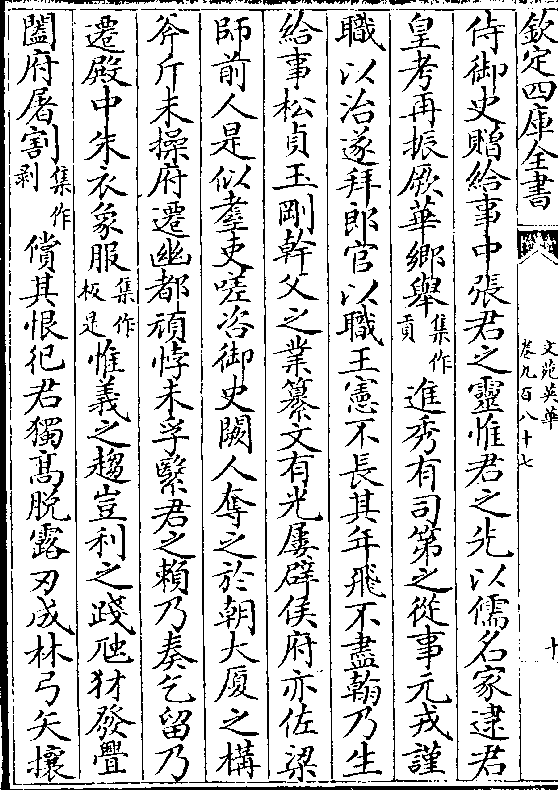 欽定四庫全書
文苑英華
卷九百八十七
十
侍御史贈給事中張君之靈惟君之先以儒名家逮君
皇考再振厥華鄉舉集作貢進秀有司第之從事元戎謹
職以治遂拜郎官以職王憲不長其年飛不盡翰乃生
給事松貞玉剛幹父之業纂文有光屢辟侯府亦佐梁
師前人是似羣吏嗟咨御史闕人奪之於朝大厦之構
斧斤未操府遷幽都頑悖未孚繄君之賴乃奏乞留乃
遷殿中朱衣象服集作板是惟義之趨豈利之踐虺豺發舋
闔府屠割集作剥償其恨犯君獨高脱露刃成林弓矢攘